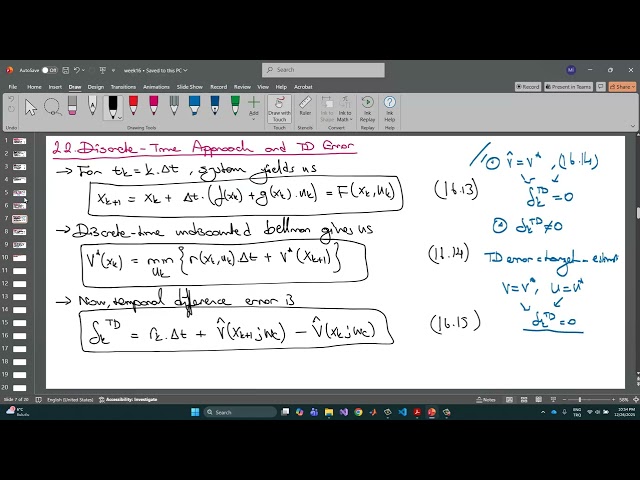 AutoSave Off week16 • Saved to this PC Search MI
File Home Insert Draw Design Transitions Animations Slide Show Record Review View Help Acrobat Record Present in Teams Share
Draw with Touch
Drawing Tools
2.2. Discrete-Time Approach and TD Error
→ For t_k = k.Δt, system yields us
x_{k+1} = x_k + Δt.(f(x_k) + g(x_k).u_k) = F(x_k, u_k) (16.13)
→ Discrete-time undiscounted bellman gives us
V*(x_k) = min_{u_k} {r(x_k, u_k).Δt + V*(x_{k+1})} (16.14)
→ Now, temporal difference error is
δ_k^{TD} = r_k.Δt + V̂(x_{k+1}; w_c) − V̂(x_k; w_c) (16.15)
V̂ = V*, (16.14)
δ_k^{TD} = 0
δ_k^{TD} ≠ 0
TD error = target − estimate
V = V*, u = u*
δ_k^{TD} = 0
Slide 7 of 20 English (United States) Accessibility: Investigate Notes 58%
6°C Search ENG 10:54 PM
TRQ 12/26/2025